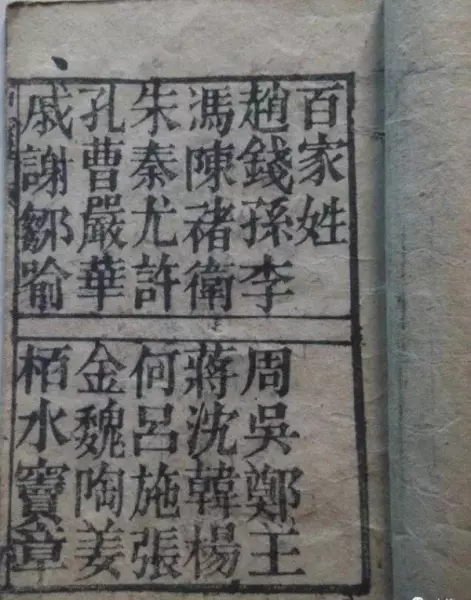 百家姓
趙錢孫李
周吳鄭王
馮陳禇衛
蔣沈韓楊
朱秦尤許
何呂施張
孔曹嚴華
金魏陶姜
戚謝鄒喻
栢水竇章